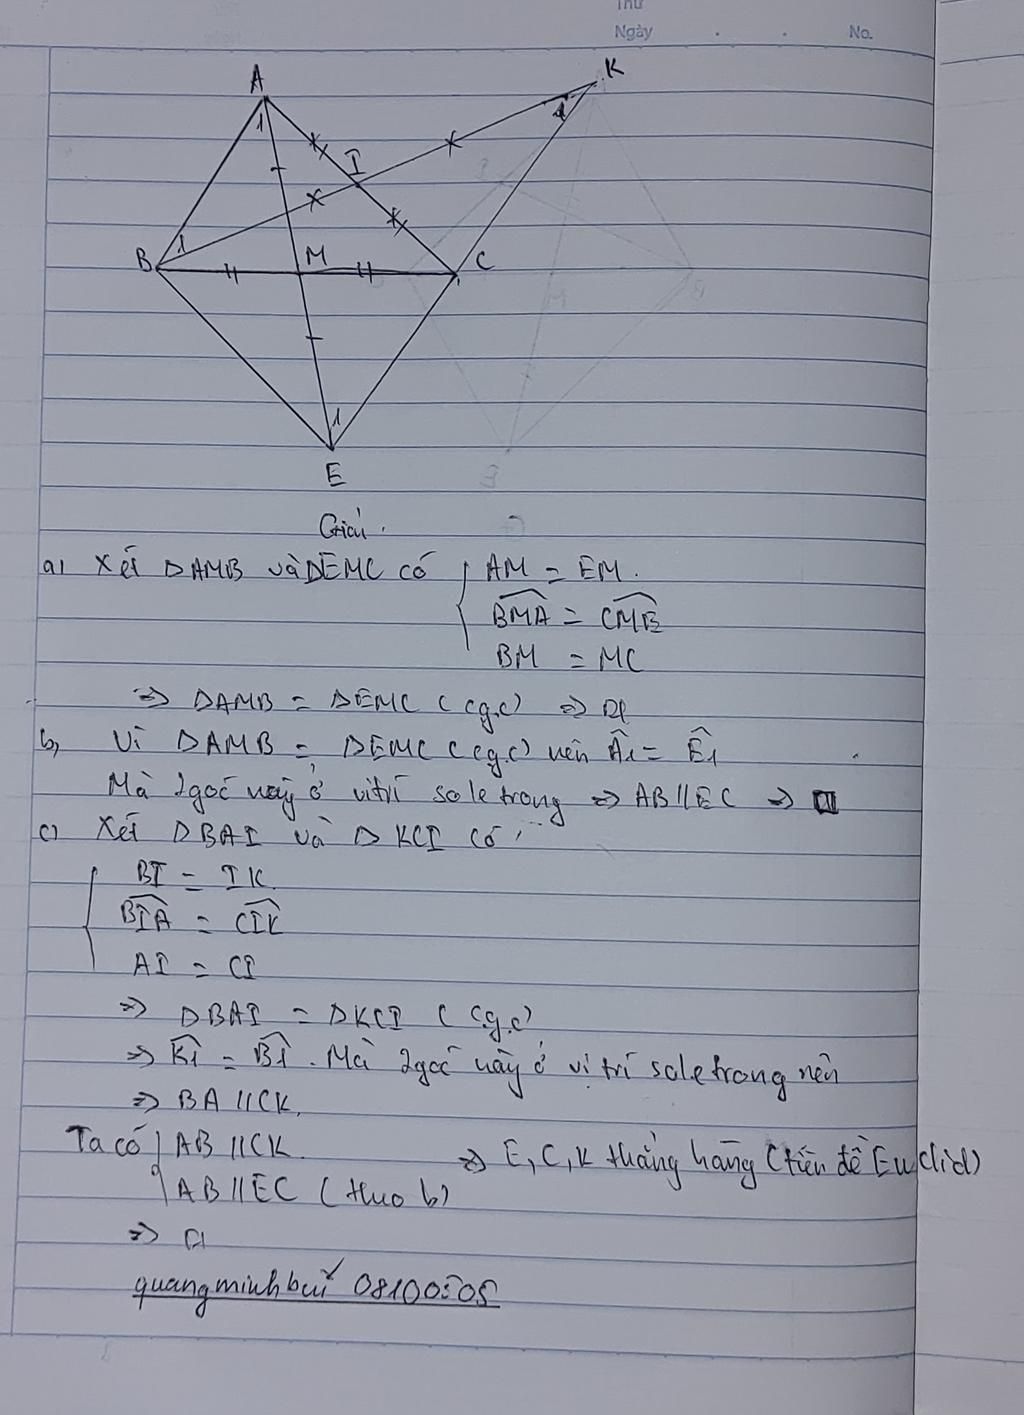 Thứ
Ngày . . No.
A
K
1
1
I
B
1
M
C
1
E
Giải.
a) Xét ΔAMB và ΔEMC có { AM = EM.
BMA = CME
BM = MC
=> ΔAMB = ΔEMC (c.g.c) => đ
b, Vì ΔAMB = ΔEMC (c.g.c) nên Â1 = Ê1
Mà 2 góc này ở vị trí sole trong => AB // EC =>
c) Xét ΔBAI và ΔKCI có:
BI = IK.
BIA = CIK
AI = CI
=> ΔBAI = ΔKCI (c.g.c)
=> K1 = B1. Mà 2 góc này ở vị trí sole trong nên
=> BA // CK.
Ta có { AB // CK. => E, C, K thẳng hàng (tiên đề Euclid)
AB // EC (theo b)
=>
quangminhbui 08100505